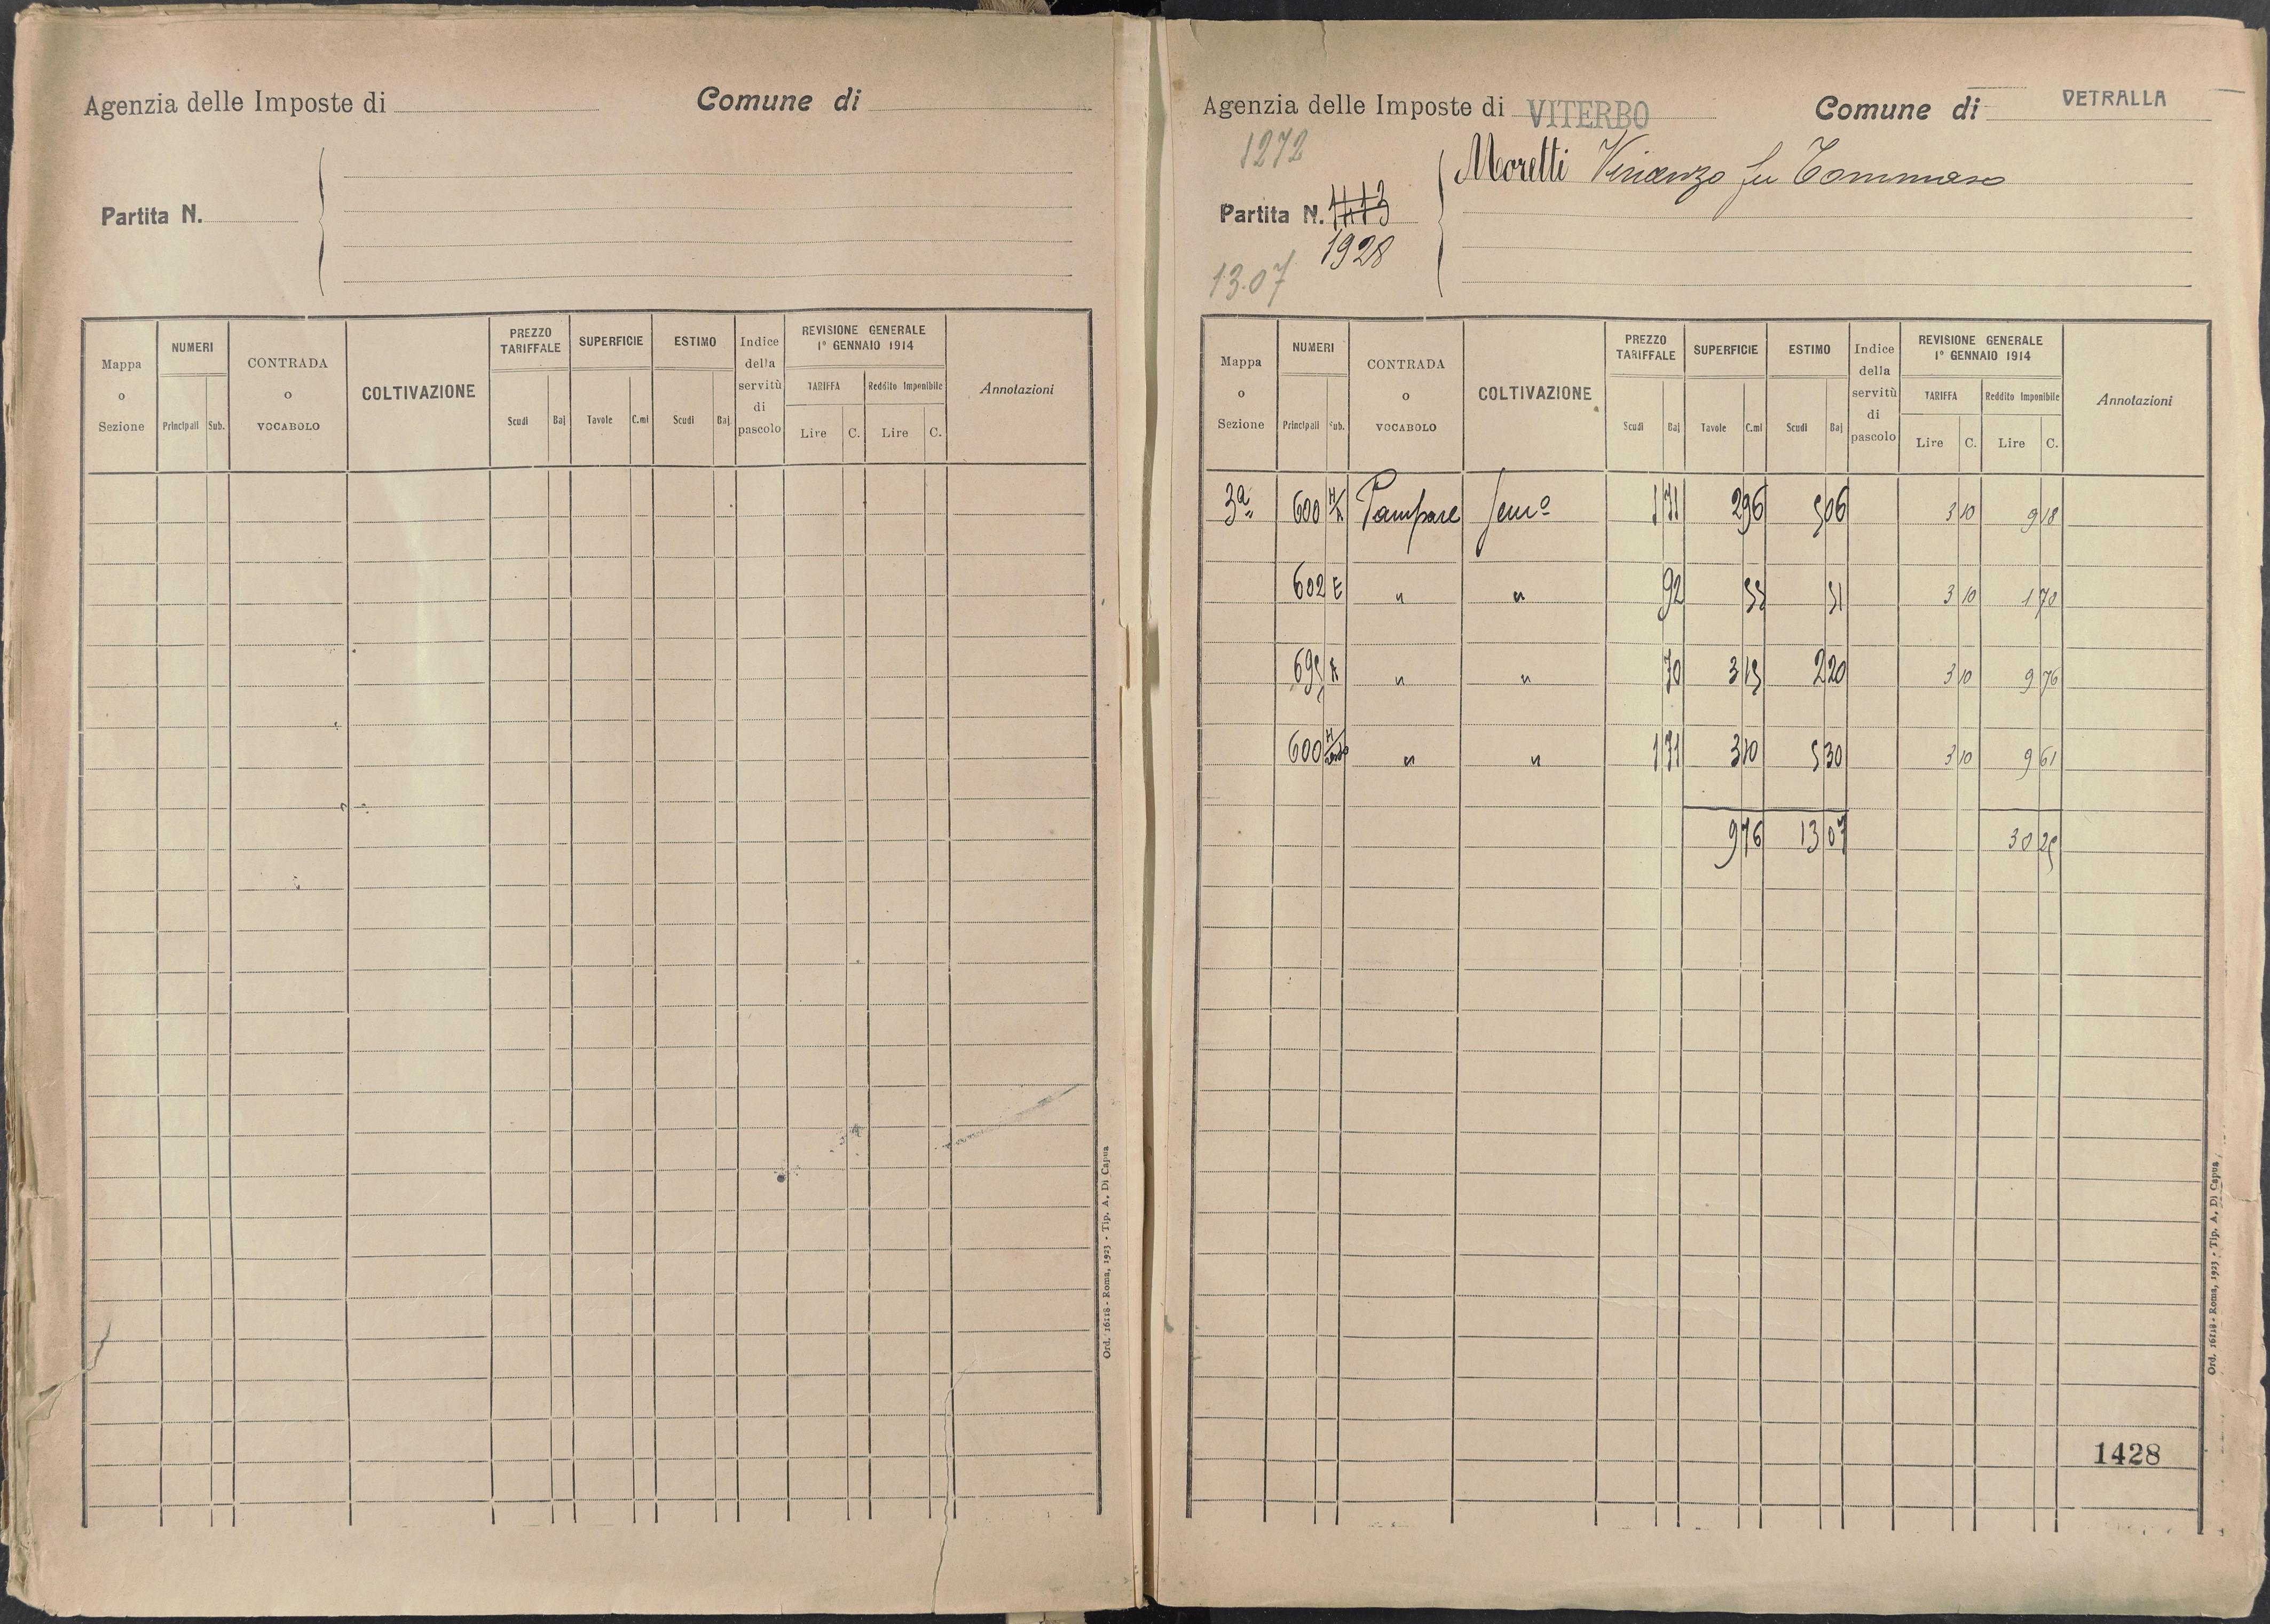 Agenzia delle Imposte di
Comune di
Partita N.
Mappa o Sezione
NUMERI
Principali Sub.
CONTRADA o VOCABOLO
COLTIVAZIONE
PREZZO TARIFFALE
Scudi Baj
SUPERFICIE
Tavole C.mi
ESTIMO
Scudi Baj
Indice della servitù di pascolo
REVISIONE GENERALE
1° GENNAIO 1914
TARIFFA Reddito Imponibile
Lire C. Lire C.
Annotazioni
Ord. 16118 - Roma, 1923 - Tip. A. Di Capua
Agenzia delle Imposte di VITERBO
Comune di VETRALLA
1272
Moretti Vincenzo fu Tommaso
Partita N. 1413
1928
13.07
Mappa o Sezione
NUMERI
Principali Sub.
CONTRADA o VOCABOLO
COLTIVAZIONE
PREZZO TARIFFALE
Scudi Baj
SUPERFICIE
Tavole C.mi
ESTIMO
Scudi Baj
Indice della servitù di pascolo
REVISIONE GENERALE
1° GENNAIO 1914
TARIFFA Reddito Imponibile
Lire C. Lire C.
Annotazioni
3a 600 Semo 1 71 2 96 5 06 3 10 9 18
602 E " " 92 55 51 3 10 1 70
695 A " " 70 3 15 2 20 3 10 9 76
600 " " 1 71 3 10 5 30 3 10 9 61
9 76 13 07 30 25
1428
Ord. 16118 - Roma, 1923 - Tip. A. Di Capua